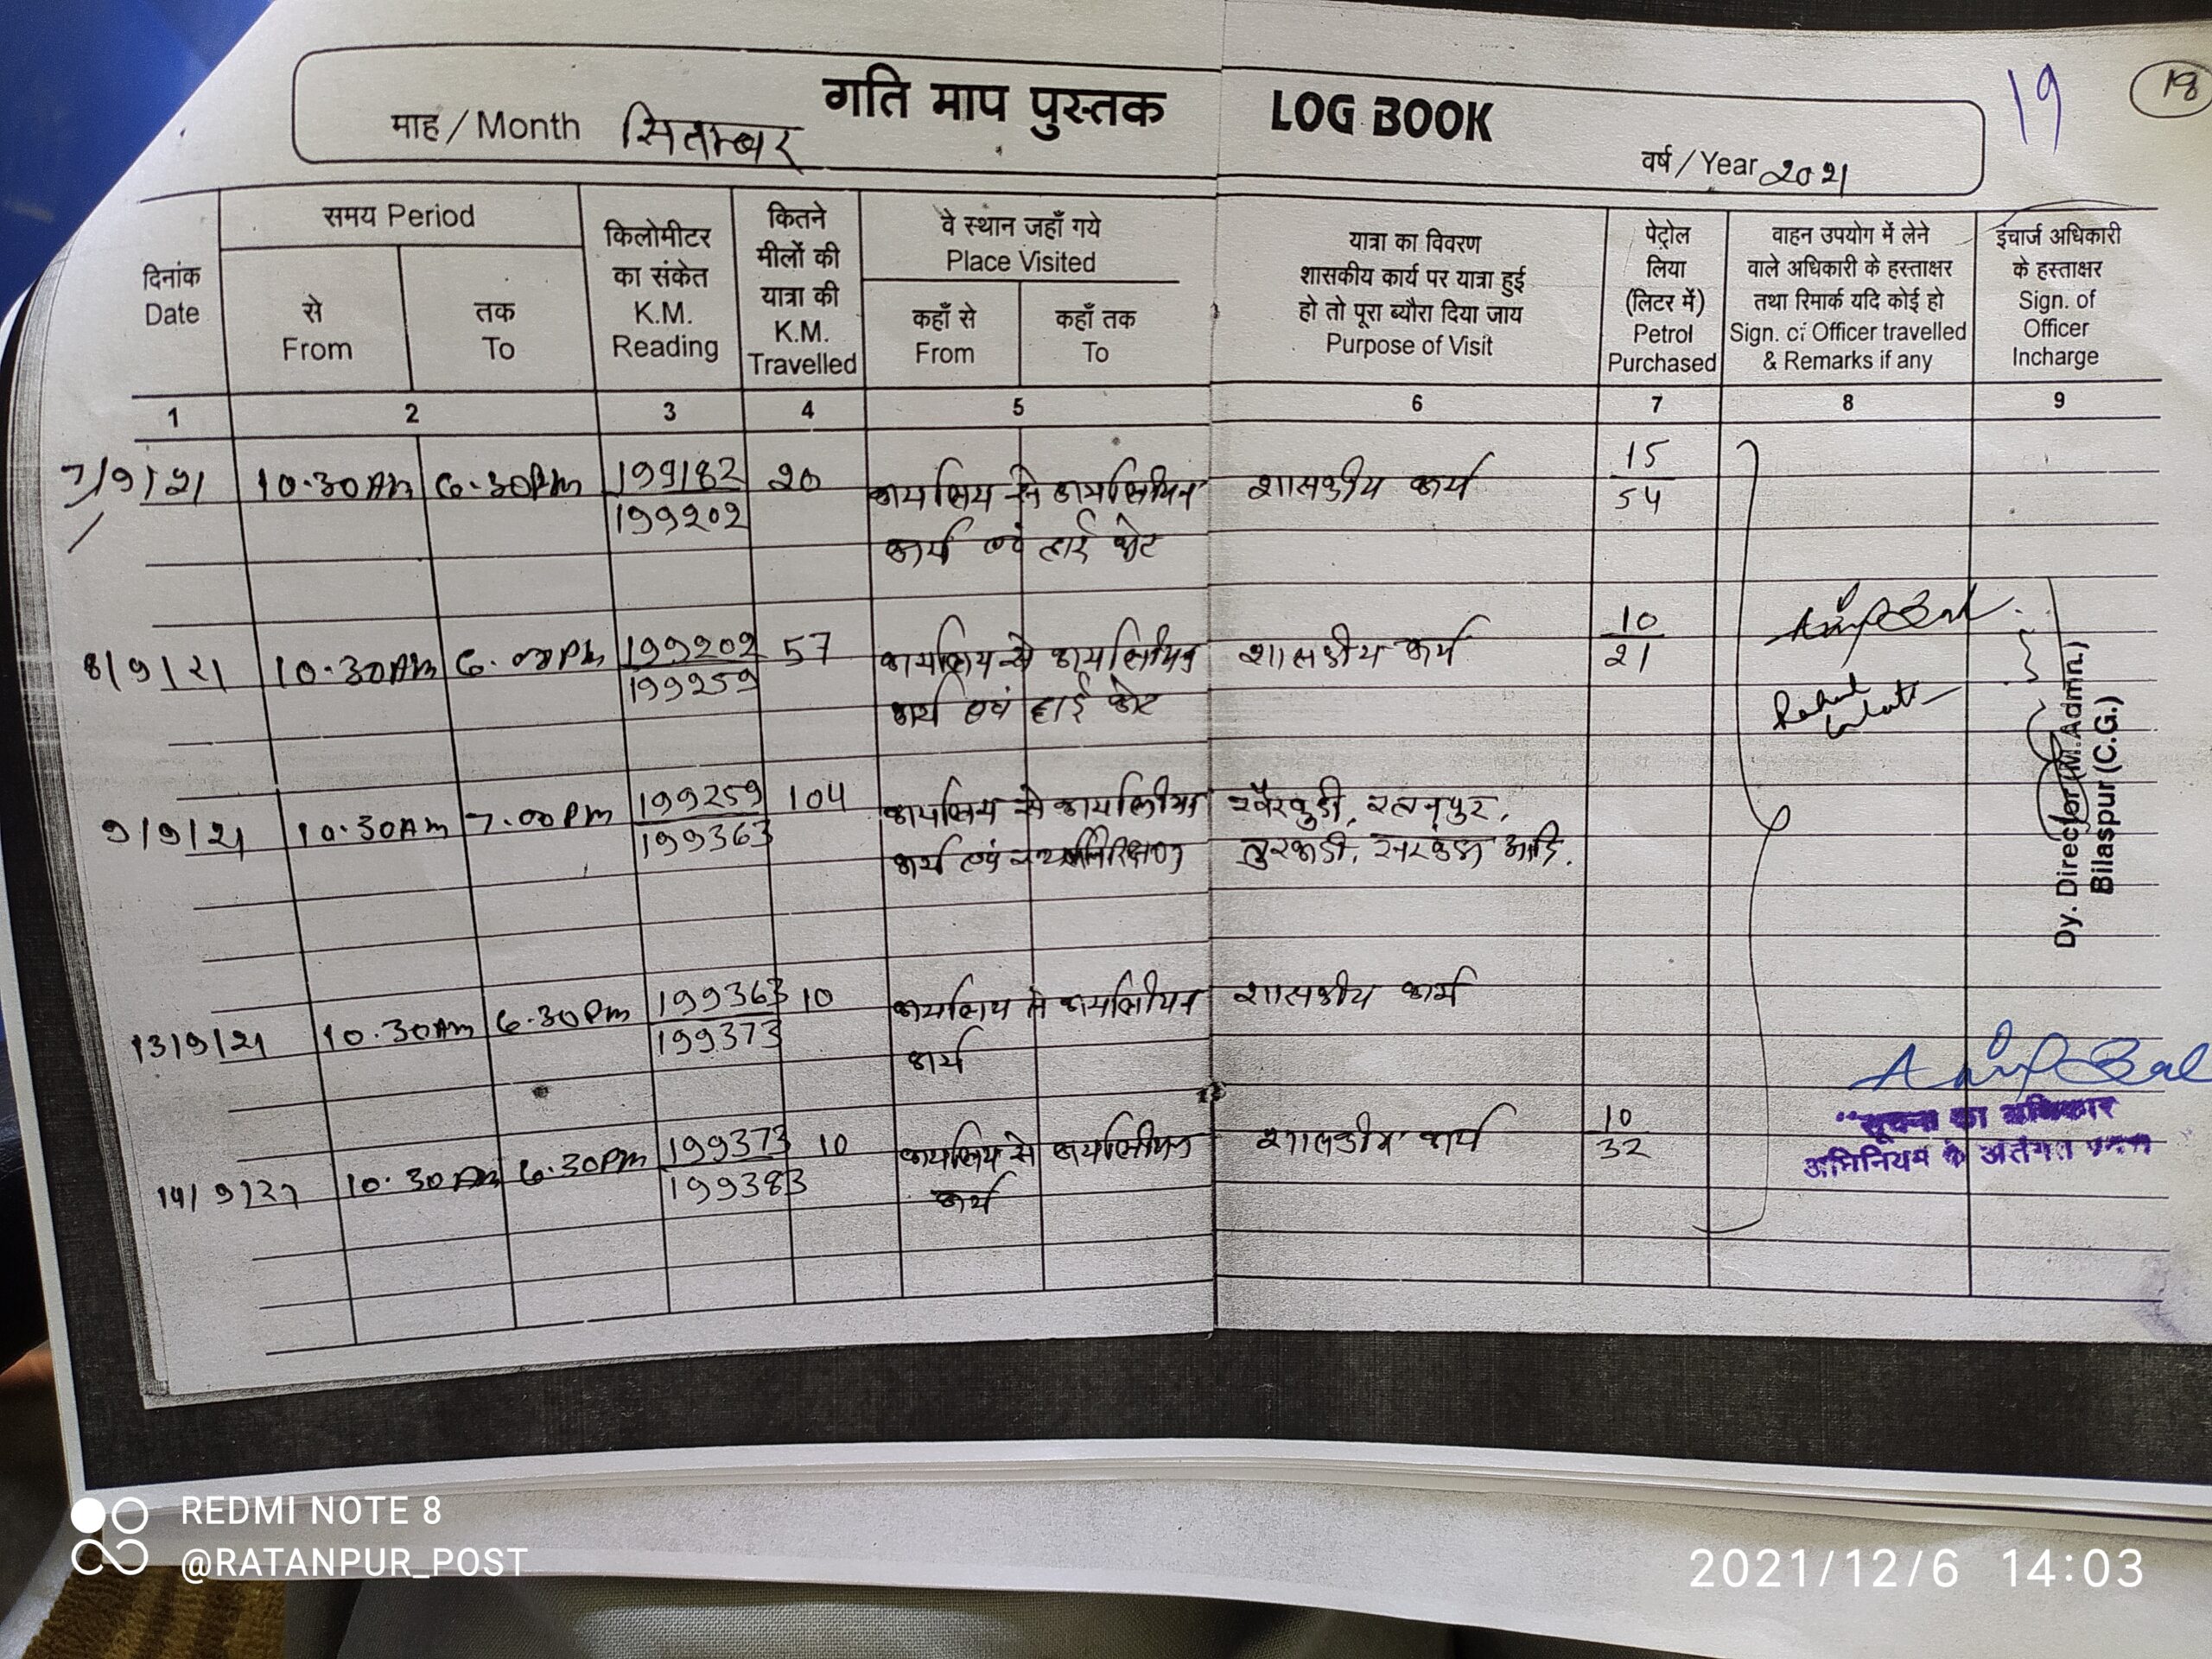 19
18
गति माप पुस्तक LOG BOOK
माह / Month सितम्बर
वर्ष / Year 2021
दिनांक
Date
समय Period
से
From
तक
To
किलोमीटर
का संकेत
K.M.
Reading
कितने
मीलों की
यात्रा की
K.M.
Travelled
वे स्थान जहाँ गये
Place Visited
कहाँ से
From
कहाँ तक
To
यात्रा का विवरण
शासकीय कार्य पर यात्रा हुई
हो तो पूरा ब्यौरा दिया जाय
Purpose of Visit
पेट्रोल
लिया
(लिटर में)
Petrol
Purchased
वाहन उपयोग में लेने
वाले अधिकारी के हस्ताक्षर
तथा रिमार्क यदि कोई हो
Sign. of Officer travelled
& Remarks if any
इंचार्ज अधिकारी
के हस्ताक्षर
Sign. of
Officer
Incharge
1 2 3 4 5 6 7 8 9
7/9/21 10.30AM 6.30PM 199182 20 कार्यालय से कार्यालयीन शासकीय कार्य 15
199202 54
कार्य एवं हाई कोर्ट
8/9/21 10.30AM 6.00PM 199202 57 कार्यालय से कार्यालयीन शासकीय कार्य 10
199259 21
कार्य एवं हाई कोर्ट
9/9/21 10.30AM 7.00PM 199259 104 कार्यालय से कार्यालयीन खैरखुडी, रतनपुर,
199363 कार्य एवं तुरकाडी, सरकंडा आदि.
13/9/21 10.30AM 6.30PM 199363 10 कार्यालय से कार्यालयीन शासकीय कार्य
199373
कार्य
14/9/21 10.30AM 6.30PM 199373 10 कार्यालय से कार्यालयीन शासकीय कार्य 10
199383 32
कार्य
Dy. Director (M.Admn.)
Bilaspur (C.G.)
"सूचना का अधिकार
अधिनियम के अंतर्गत
REDMI NOTE 8
@RATANPUR_POST
2021/12/6 14:03